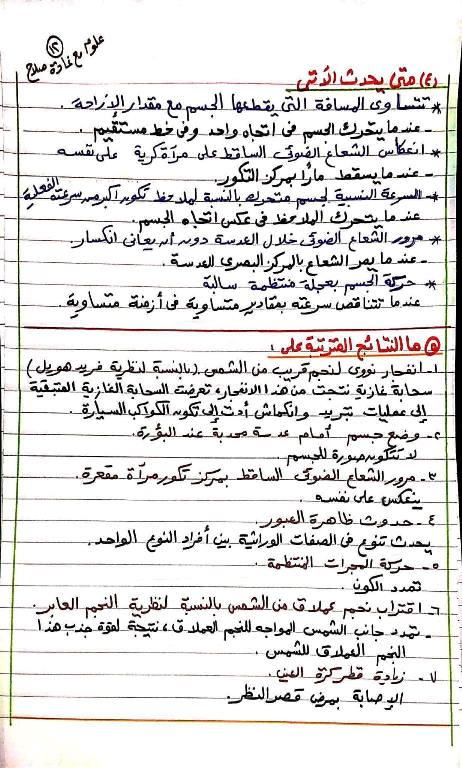 علوم مع غادة صلاح
١٢
(٤) متى يحدث الآتى
* تتساوى المسافة التى يقطعها الجسم مع مقدار الإزاحة .
- عندما يتحرك الجسم فى اتجاه واحد وفى خط مستقيم .
* انعكاس الشعاع الضوئى الساقط على مرآة كرية على نفسه
- عندما يسقط مارًا بمركز التكور.
* السرعة النسبية لجسم متحرك بالنسبة لملاحظ تكون أكبر من سرعته الفعلية
عندما يتحرك الملاحظ فى عكس اتجاه الجسم .
* مرور الشعاع الضوئى خلال العدسة دون أن يعانى انكسار.
- عندما يمر الشعاع بالمركز البصرى للعدسة .
* حركة الجسم بعجلة منتظمة سالبة
عندما تتناقص سرعته بمقادير متساوية فى أزمنة متساوية .
٥ ما النتائج المترتبة على :
١- انفجار نووى لنجم قريب من الشمس (بالنسبة لنظرية فريد هويل)
سحابة غازية نتجت من هذا الانفجار، تعرضت السحابة الغازية المتبقية
إلى عمليات تبريد وانكماش أدت إلى تكون الكواكب السيارة .
٢- وضع جسم أمام عدسة محدبة عند البؤرة .
لا تتكون صورة للجسم .
٣- مرور الشعاع الضوئى الساقط بمركز تكور مرآة مقعرة .
ينعكس على نفسه .
٤- حدوث ظاهرة العبور .
يحدث تنوع فى الصفات الوراثية بين أفراد النوع الواحد .
٥- حركة المجرات المنتظمة .
تمدد الكون .
٦- اقتراب نجم عملاق من الشمس بالنسبة لنظرية النجم العابر .
- تمدد جانب الشمس المواجه للنجم العملاق ، نتيجة لقوة جذب هذا
النجم العملاق للشمس .
٧- زيادة قطر كرة العين .
الإصابة بمرض قصر النظر .